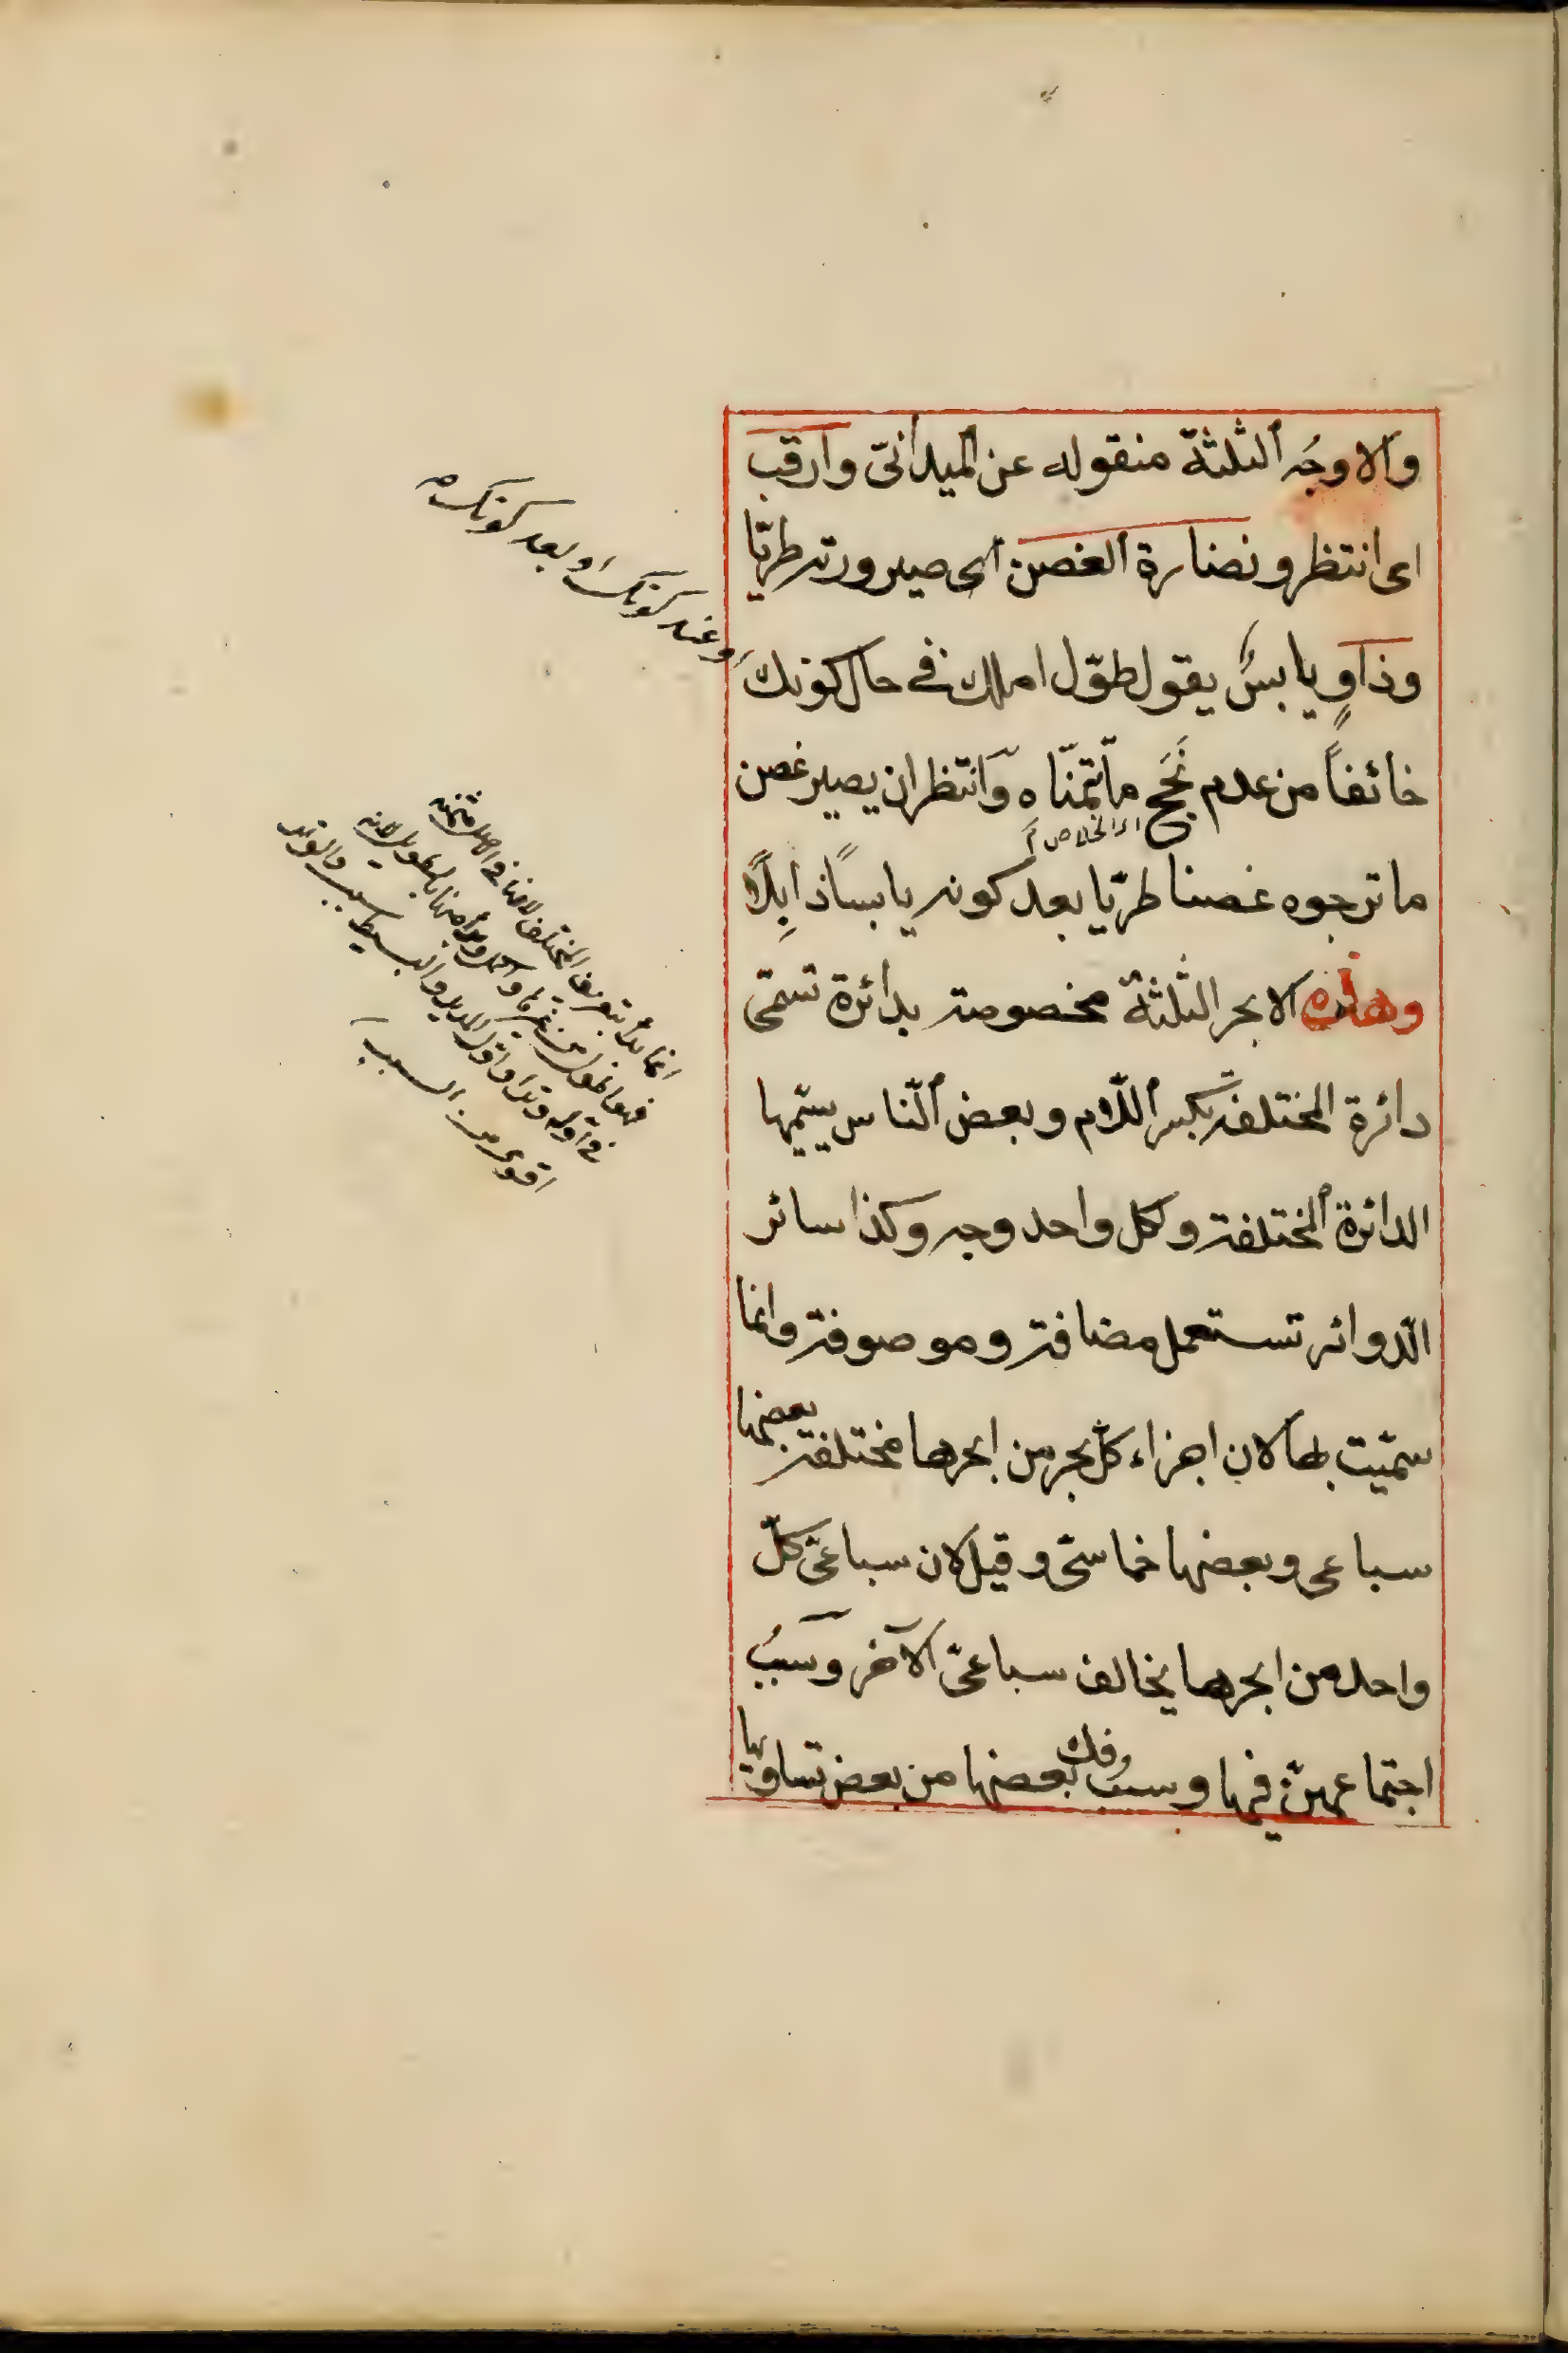 والاوجُه الثلثة منقوله عن الميدانىّ وارقب
اى انتظر ونضارة الغصن اى صيرورته طريّا
وذاوٍ يابسٌ يقول طوّل املك فى حال كونك
خائفاً من عدم نَجَح ما تتمنّاه وانتظر ان يصير غصن
ما ترجوه غصنا طريّا بعد كونه يابساً ذابِلًا
وهذه الابحر الثلثة مخصوصة بدائرة تسمّى
دائرة المختلفة بكسر اللّام وبعض النّاس يسمّيها
الدائرة المختلفة ولكل واحد وجه وكذا سائر
الدّوائر تستعمل مضافة وموصوفة وانما
سمّيت بها لان اجزاء كلّ بحر من ابحرها مختلفة بعضها
سباعى وبعضها خماسىّ وقيل لان سباعىّ كلّ
واحد من ابحرها يخالف سباعىّ الآخر وسببُ
اجتماعهنّ فيها وسببُ فكّ بعضها من بعض تساويها
او عند كونك او بعد كونك صح
فى اوله وتد واول المديد والبسيط سبب والوتد
اقوى من السبب